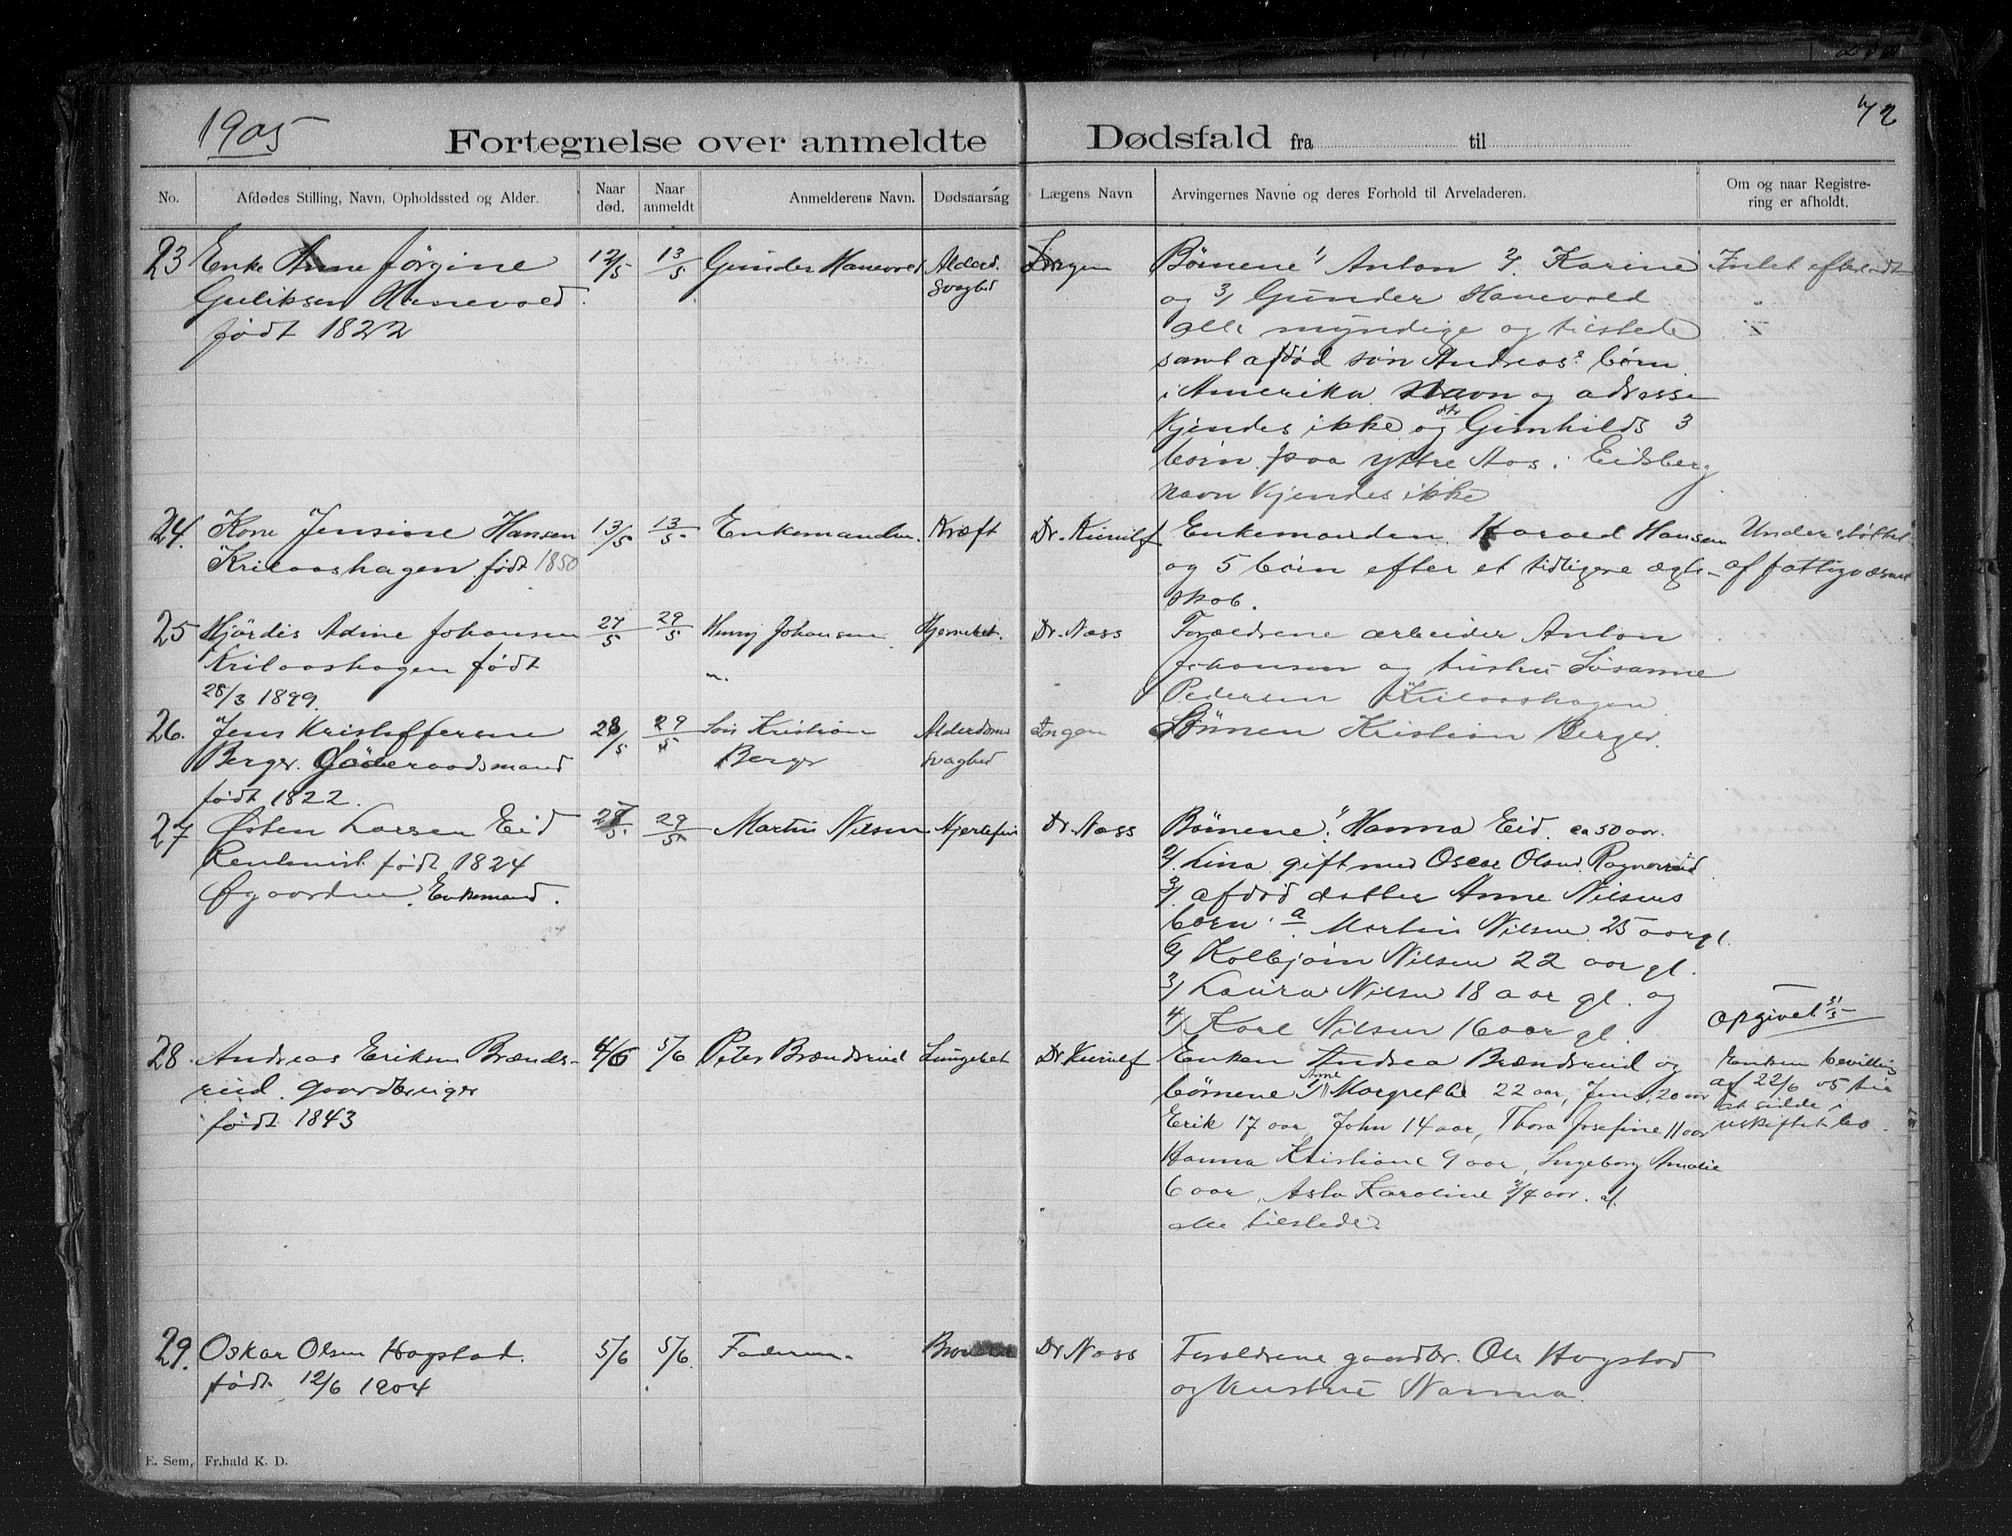 1905
72
Fortegnelse over anmeldte Dødsfald fra til
No.
Afdødes Stilling, Navn, Opholdssted og Alder.
Naar død.
Naar anmeldt
Anmelderens Navn.
Dødsaarsag
Lægens Navn
Arvingernes Navne og deres Forhold til Arveladeren.
Om og naar Registre-
ring er afholdt.
23 Enke Anne Jørgine 12/5 13/5 Gunder Hanevold Alderd. Ingen Børnene 1/ Anton 2/ Karine Intet efterladt
Guliksen Hanevold svaghed og 3/ Gunder Hanevold
født 1822 alle myndige og tilstede
samt afdød søn Andreas' børn
i Amerika Navn og adresse
kjendes ikke og dtr Gunhilds 3
børn paa Ystre Aas i Eidsberg
navn kjendes ikke
24. Kone Jensine Hansen 13/5 13/5 Enkemanden Kræft Dr. Kunilf Enkemanden Harald Hansen Understøttet
Krilaashagen født 1850 og 5 børn efter et tidligere ægte- af fattigvæsenet
skab.
25 Hjördis Adine Johansen 27/5 29/5 Henry Johansen Dr. Næss Forældrene arbeider Anton
Krilaashagen født " Johansen og hustru Susanne
28/3 1899. Pedersen Krilaashagen
26. Jens Kristoffersen 28/5 29/5 Søn Kristian Alderdoms Ingen Sønnen Kristian Berger.
Berger. Föderaadsmand Berger svaghed
født 1822.
27 Østen Larsen Eid 27/5. 29/5 Martin Nilsen Hjertefeil Dr. Næss Børnene 1/ Hanna Eid. ca 50 aar.
født 1824 2/. Lina gift med Oscar Olsen
Øgaarden. Enkemand. 3/. afdød datter Anne Nilsens
børn. a. Martin Nilsen 25 aar gl.
2/ Kolbjørn Nilsen 22 aar gl.
3/ Laura Nilsen 18 aar gl. og
4/ Karl Nilsen 16 aar gl. Opgivet 31/5
28. Andreas Eriksen Brænds- 4/6 5/6 Peter Brændsrud Lungebet Dr Kunilf Enken Andrea Brændsrud og Enken bevilling
rud. gaardbruger børnene 1/ Anne Margrethe 22 aar, Jens 20 aar af 22/6 05 til
født 1843 Erik 17 aar, John 14 aar, Thora Josefine 11 aar at sidde i
Hanna Kristiane 9 aar, Ingeborg Amalie uskiftet bo.
6 aar, Asta Karoline 3/4 aar. gl.
alle tilstede.
29. Oskar Olsen Hagstad. 5/6 5/6. Faderen Dr Næss Forældrene gaardbr. Ole Hagstad
født 12/6 1904 og hustru Nanna.
E. Sem, Fr.hald K. D.